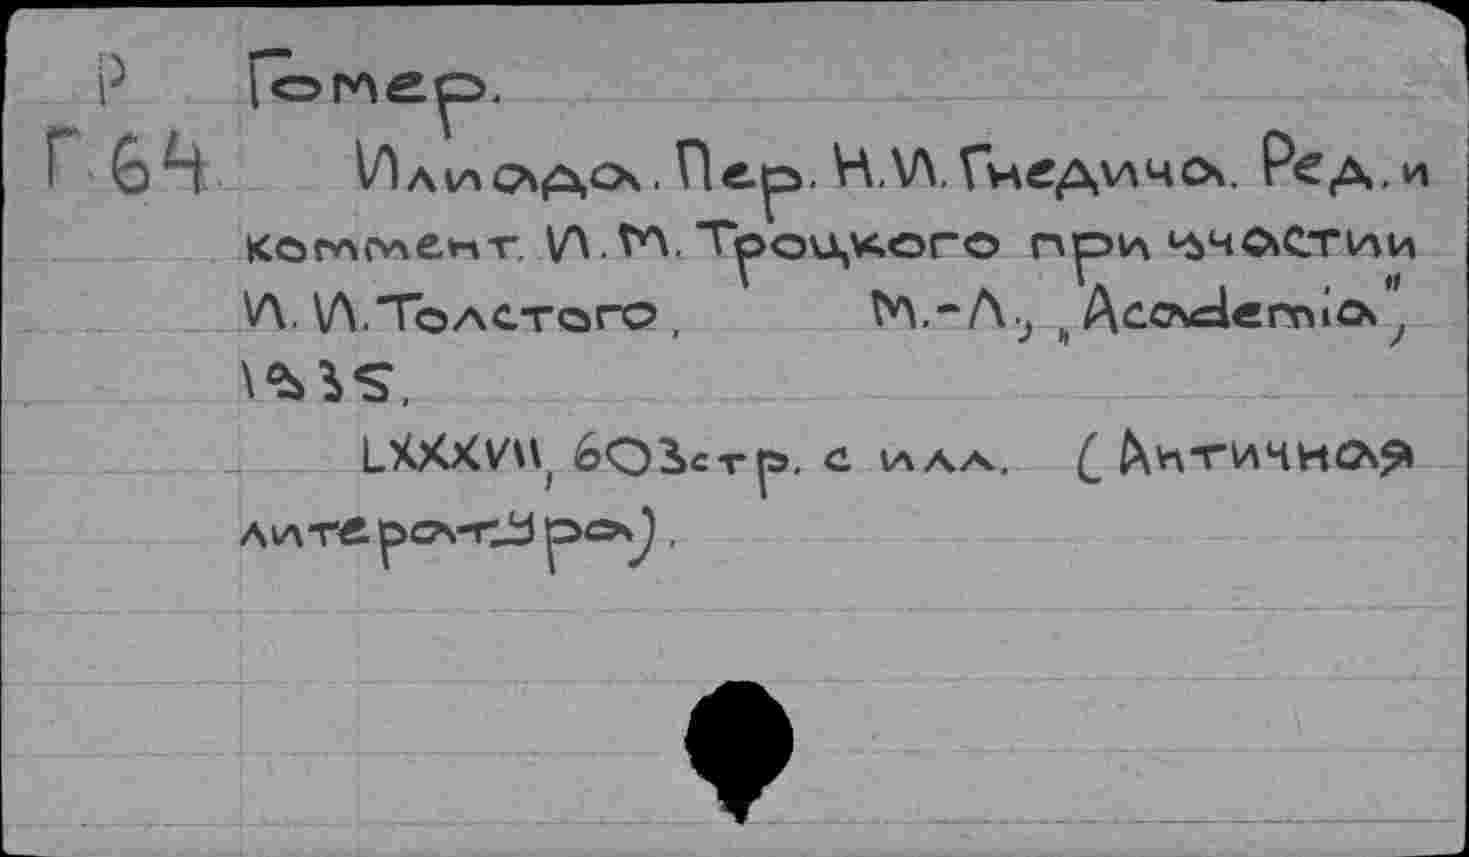 Р Гомер.
Г 64 Илиада. Пер. Н.И. Гнедича. Ред. и
коммент. И.М. Троцкого при участии
И.И. Толстого, М.-Л., „Academia",
1935.
LXXXVII, 603 стр. с илл. (Античная
литература).